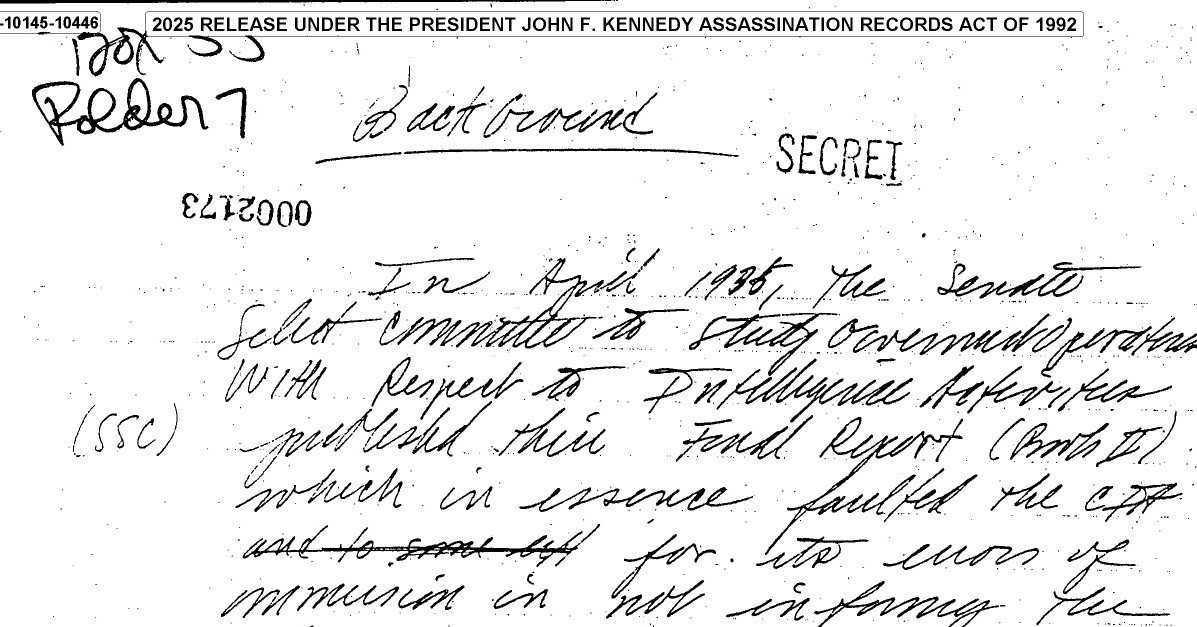 -10145-10446
2025 RELEASE UNDER THE PRESIDENT JOHN F. KENNEDY ASSASSINATION RECORDS ACT OF 1992
Box 55
Folder 7
Background
SECRET
0002173
In April 1975, the Senate
Select Committee to Study Government Operations
With Respect to Intelligence Activities
(SSC)
published their Final Report (Book V)
which in essence faulted the CIA
and to some ext for its errors of
ommission in not informing the